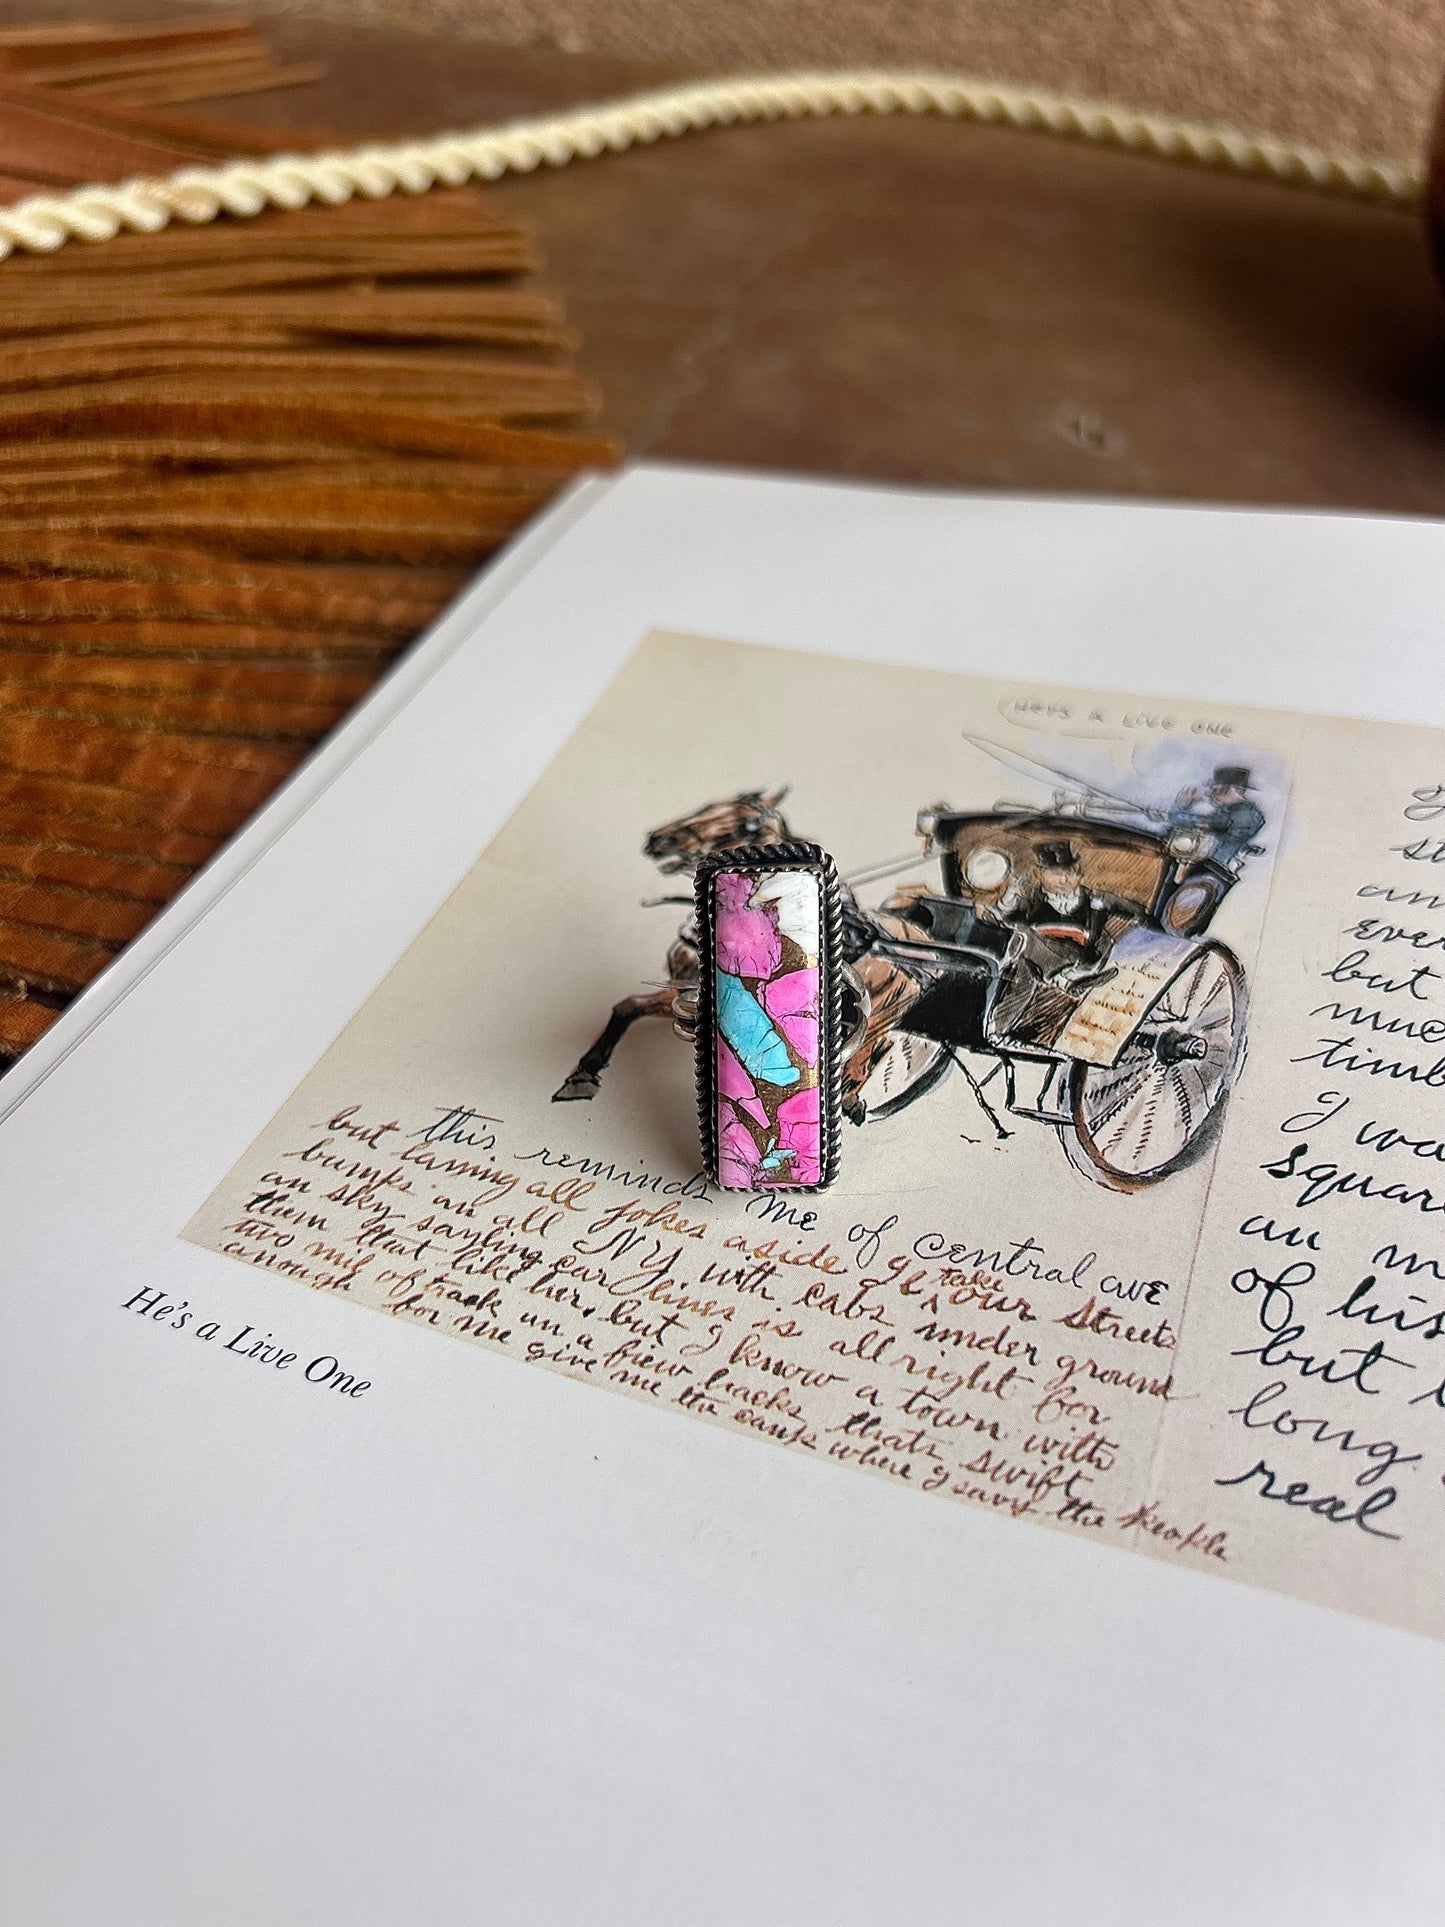 HE'S A LIVE ONE
but this reminds me of Central ave
but laming all jokes aside y take our streets
bumks an all NY. with cabs under ground
an sky sayling car lines is all right for
them that like her, but I know a town with
two mile of track un a fiew hacks, thats swift
anough for me give me the camp where I savy the people
ever
but
muc
timb
I wa
squar
an m
of his
but
long
real
He's a Live One